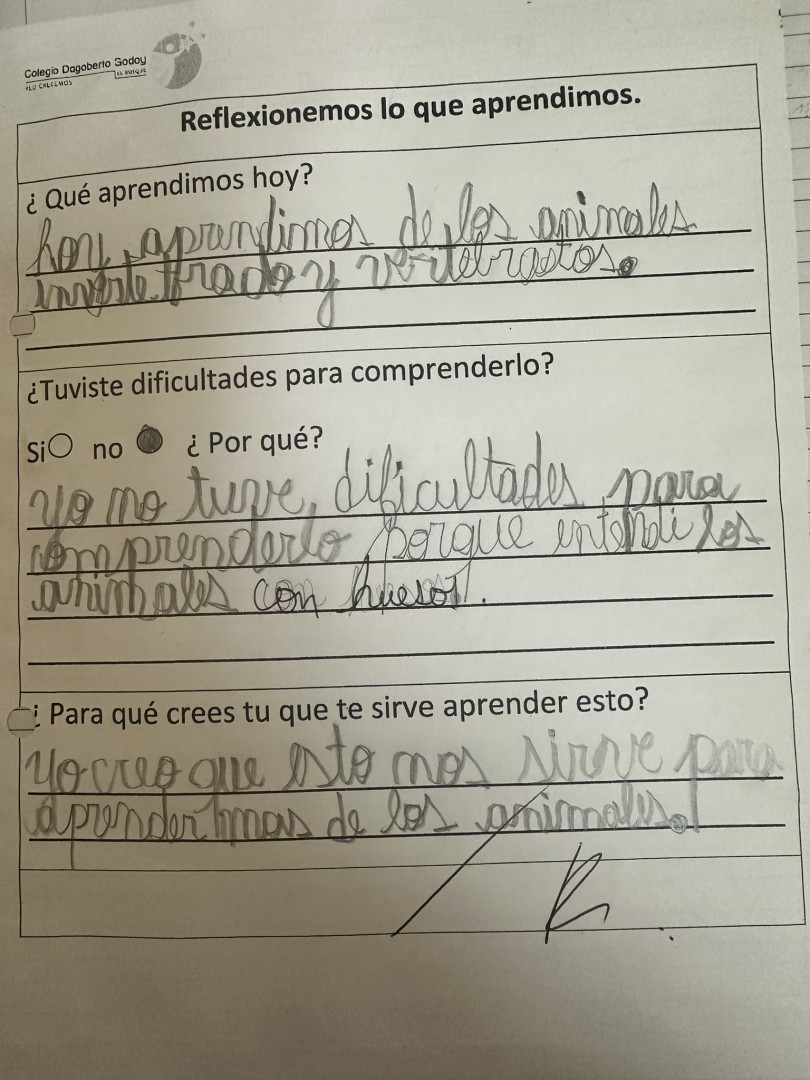 Colegio Dagoberto Godoy
EL BOSQUE
Reflexionemos lo que aprendimos.
¿ Qué aprendimos hoy?
hoy aprendimos de los animales
invertetrado y vertebrados.
¿Tuviste dificultades para comprenderlo?
Si no ¿ Por qué?
yo no tuve, dificultades para
comprenderlo porque entendi los
animales con huesos.
¿ Para qué crees tu que te sirve aprender esto?
Yo creo que esto nos sirve para
aprender mas de los animales.